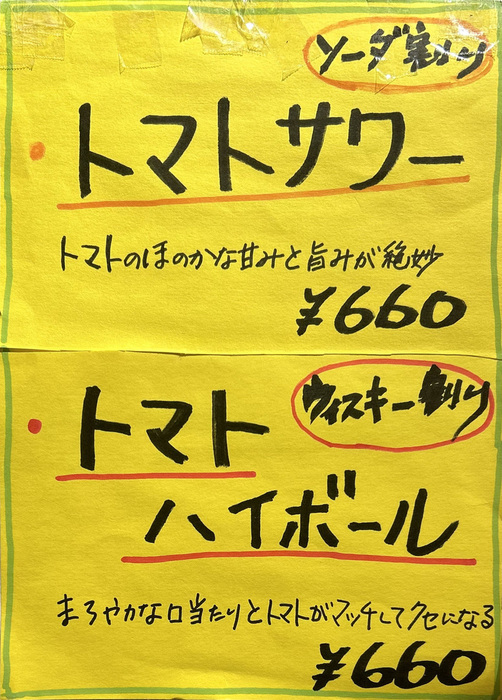 ソーダ割り
トマトサワー
トマトのほのかな甘みと旨みが絶妙
¥660
ウィスキー割り
トマト
ハイボール
まろやかな口当たりとトマトがマッチしてクセになる
¥660